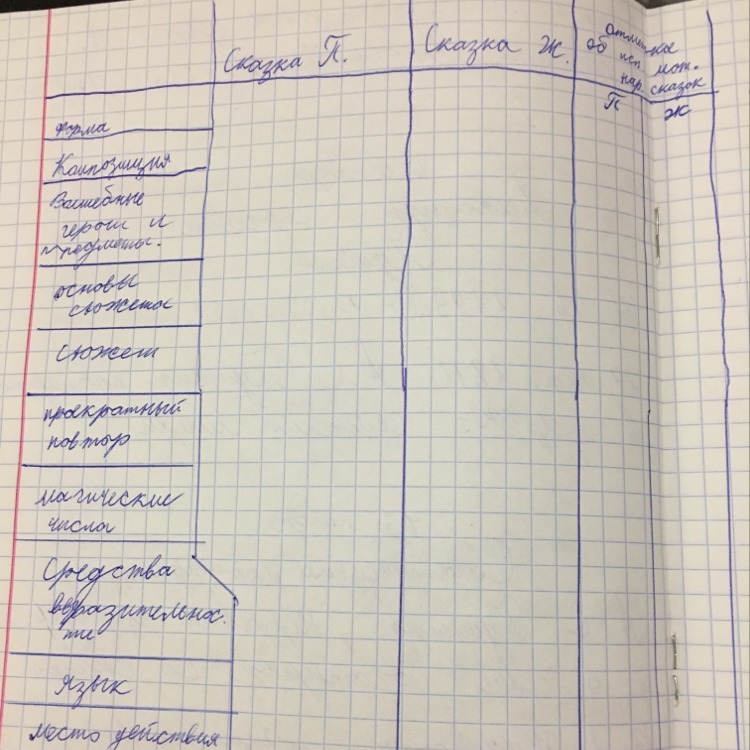 Сказка П.
Сказка Ж.
Отметка
об исп. мот.
нар. сказок
П
Ж
Форма
Композиция
Волшебные
герои и
предметы.
основы
сюжета
сюжет
троекратный
повтор
магические
числа
Средства
выразительнос.
ти
язык
место действия